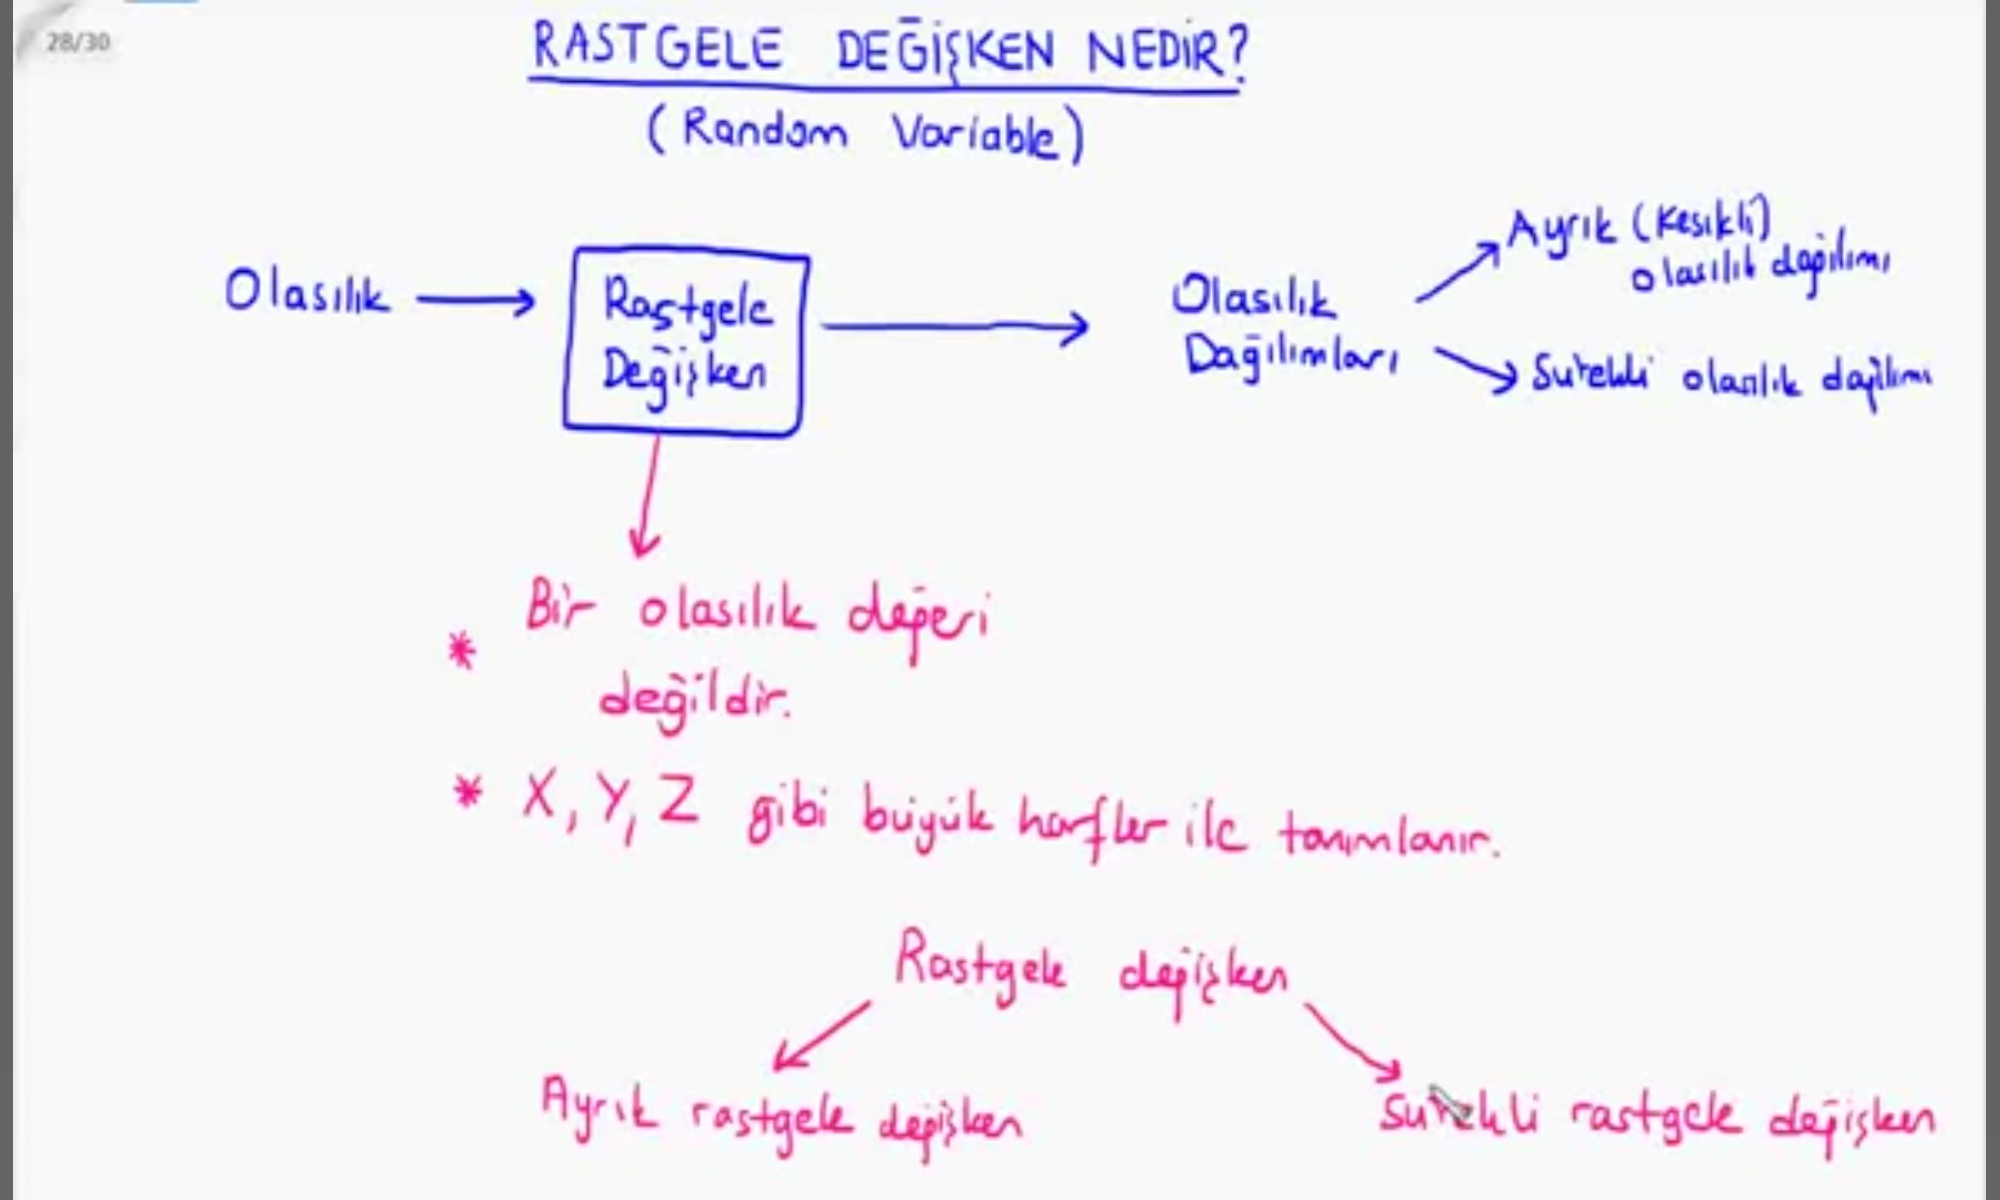 28/30
RASTGELE DEĞİŞKEN NEDİR?
(Random Variable)
Olasılık
Rastgele
Değişken
Olasılık
Dağılımları
Ayrık (Kesikli)
olasılık dağılımı
Sürekli olasılık dağılımı
* Bir olasılık değeri
değildir.
* X, Y, Z gibi büyük harfler ile tanımlanır.
Rastgele değişken
Ayrık rastgele değişken
Sürekli rastgele değişken